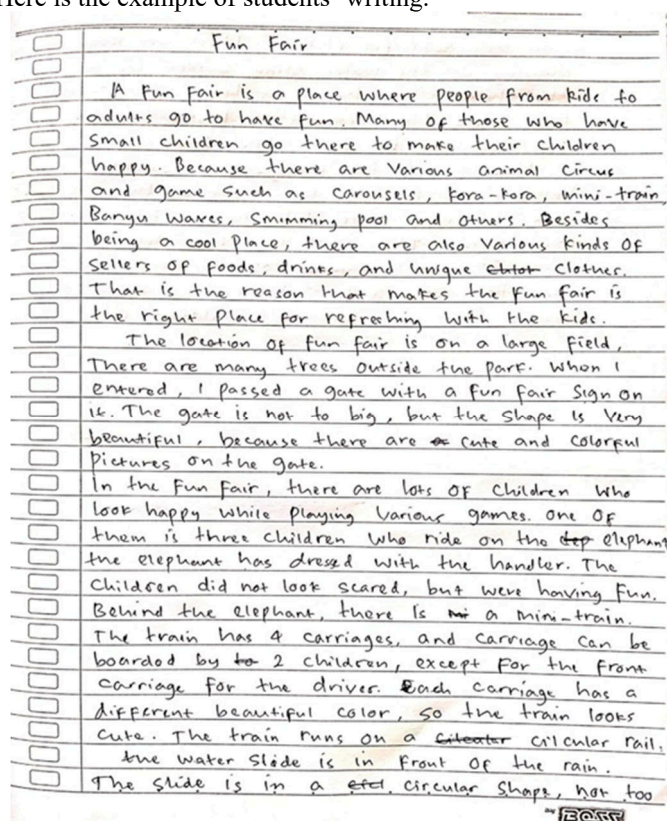 Here is the example of students' writing:
Fun Fair
A Fun Fair is a place where people from kids to
adults go to have fun. Many of those who have
small children go there to make their children
happy. Because there are Various animal Circus
and game such as carousels, kora-kora, mini-train,
Banyu waves, Smimming pool and others. Besides
being a cool Place, there are also Various kinds of
Sellers of foods, drinks, and unique Clothes.
That is the reason that makes the fun fair is
the right Place for refreshing with the kids.
The location of fun fair is on a large field,
There are many trees outside the park. When I
entered, I passed a gate with a fun fair Sign on
it. The gate is not to big, but the shape is very
beautiful, because there are cute and colorful
Pictures on the gate.
In the Fun Fair, there are lots of children who
look happy while playing Various games. one of
them is three children who ride on the elephant
the elephant has dressed with the handler. The
Children did not look scared, but were having fun.
Behind the elephant, there is a mini-train.
The train has 4 carriages, and carriage can be
boarded by 2 children, except for the front
carriage for the driver. Each carriage has a
different beautiful color, so the train looks
cute. The train runs on a cilcular rail.
the water Slide is in front of the rain.
The slide is in a circular shape, not too
BOSS